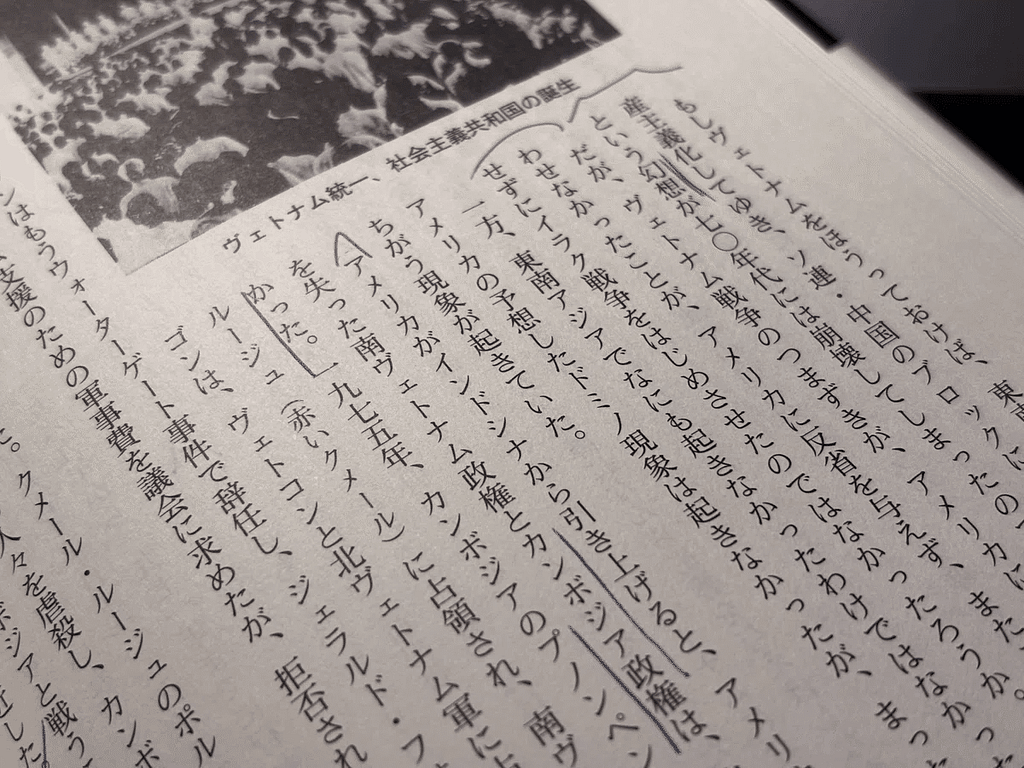 ヴェトナム統一、社会主義共和国の誕生
もしヴェトナムをほうっておけば、東
産主義化してゆき、ソ連・中国のブロックに
という幻想が七〇年代には崩壊してしまったの
だが、ヴェトナム戦争のつまずきが、アメリカに
わせなかったことが、アメリカに反省を与えず、また、
せずにイラク戦争をはじめさせたのではなかったろうか。
一方、東南アジアでなにも起きなかったわけではなかった
アメリカの予想したドミノ現象は起きなかったが、まっ
ちがう現象が起きていた。
アメリカがインドシナから引き上げると、アメリ
を失った南ヴェトナム政権とカンボジア政権は、
かった。一九七五年、カンボジアのプノンペン
ルージュ（赤いクメール）に占領され、南ヴ
ゴンは、ヴェトコンと北ヴェトナム軍に占
ンはもうウォーターゲート事件で辞任し、ジェラルド・フ
支援のための軍事費を議会に求めたが、拒否され
クメール・ルージュのポル
人々を虐殺し、カンボ
ボジアと戦う
近した